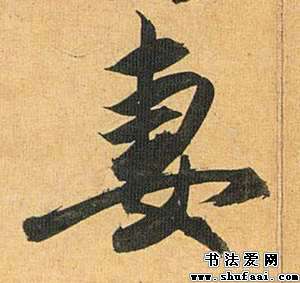 妻
书法爱网
www.shufaai.com